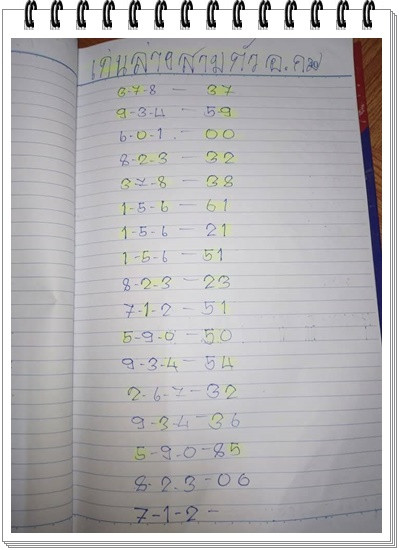 เด่นล่างสามตัว อ.
3-7-8 — 37
9-3-4 — 59
6-0-1 — 00
8-2-3 — 32
3-7-8 — 38
1-5-6 — 61
1-5-6 — 21
1-5-6 — 51
8-2-3 — 23
7-1-2 — 51
5-9-0 — 50
9-3-4 — 54
2-6-7 — 32
9-3-4 — 36
5-9-0 — 85
8-2-3 — 06
7-1-2 —